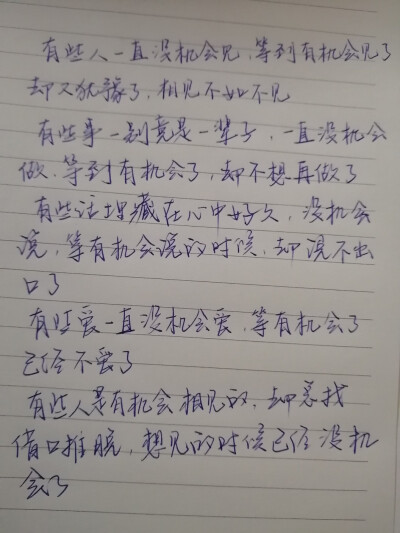 有些人一直没机会见,等到有机会见了
却又犹豫了,相见不如不见
有些事一别竟是一辈子,一直没机会
做.等到有机会了,却不想再做了
有些话埋藏在心中好久,没机会
说,等有机会说的时候,却说不出
口了
有些爱一直没机会爱,等有机会了
已经不爱了
有些人是有机会相见的,却总找
借口推脱,想见的时候已经没机
会了